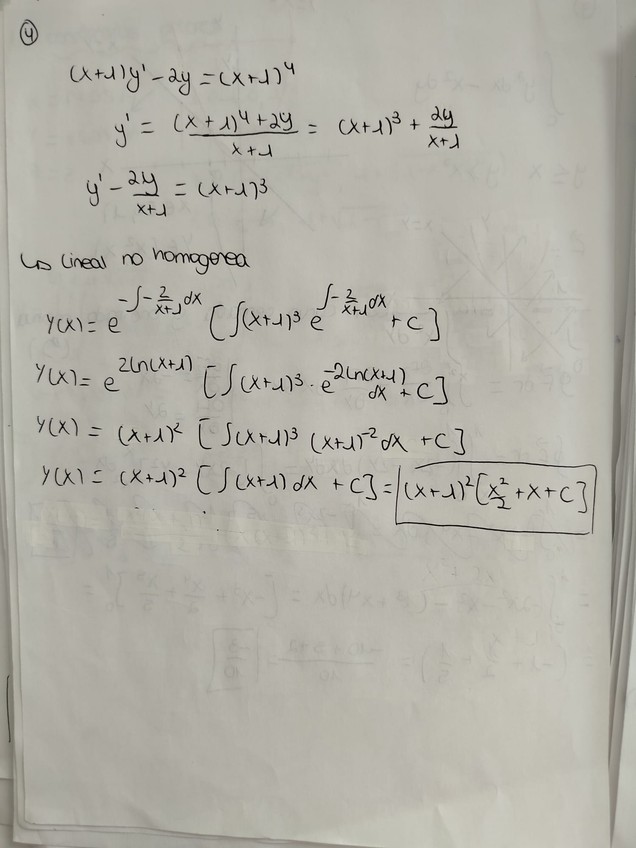 4
(x+1)y' - 2y = (x+1)^4
y' = \frac{(x+1)^4+2y}{x+1} = (x+1)^3 + \frac{2y}{x+1}
y' - \frac{2y}{x+1} = (x+1)^3
↳ Lineal no homogenea
y(x) = e^{-∫-\frac{2}{x+1}dx} [∫(x+1)^3 e^{∫-\frac{2}{x+1}dx} + C]
y(x) = e^{2ln(x+1)} [∫(x+1)^3 · e^{-2ln(x+1)} dx + C]
y(x) = (x+1)^2 [∫(x+1)^3 (x+1)^{-2} dx + C]
y(x) = (x+1)^2 [∫(x+1) dx + C] = (x+1)^2 [\frac{x^2}{2} + x + C]